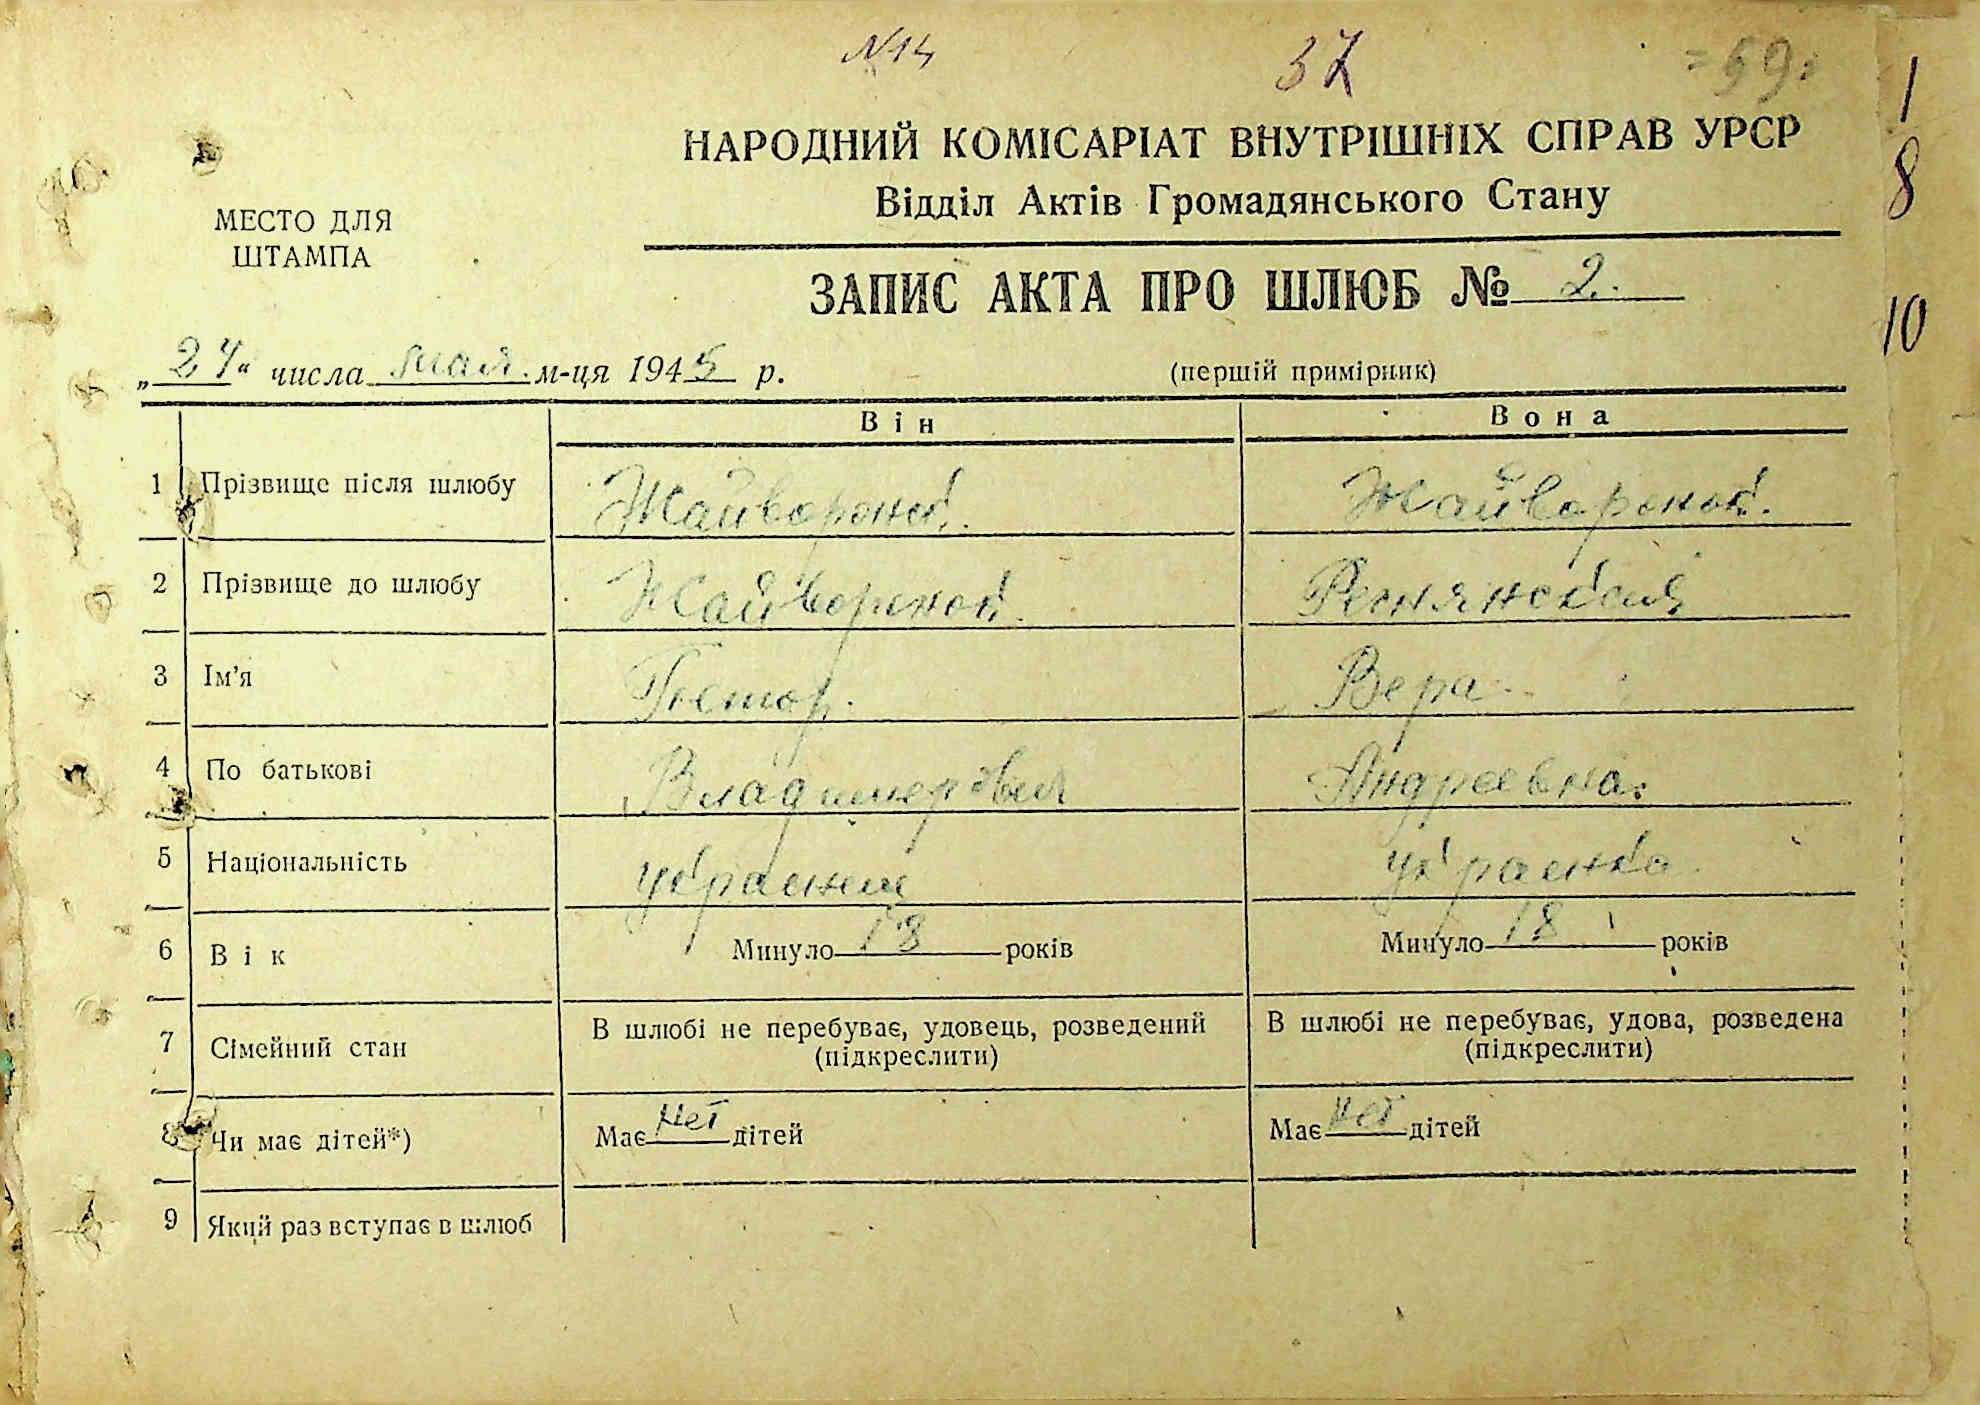 N14 37 59
1
8
10
НАРОДНИЙ КОМІСАРІАТ ВНУТРІШНІХ СПРАВ УРСР
Відділ Актів Громадянського Стану
МЕСТО ДЛЯ
ШТАМПА
ЗАПИС АКТА ПРО ШЛЮБ № 2.
„24“ числа мая м-ця 1945 р. (першій примірник)
Він Вона
1 Прізвище після шлюбу Жайвороной. Жайвороной.
2 Прізвище до шлюбу Жайвороной.
3 Ім'я Вера
4 По батькові Владимерович Андреевна.
5 Національність украинец украинка
6 Вік Минуло 18 років Минуло 18 років
7 Сімейний стан В шлюбі не перебуває, удовець, розведений В шлюбі не перебуває, удова, розведена
(підкреслити) (підкреслити)
8 Чи має дітей*) Має нет дітей Має нет дітей
9 Який раз вступає в шлюб